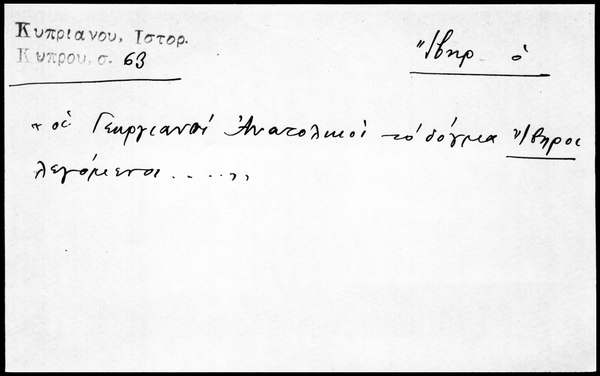 Κυπριανου, Ιστορ.
Κυπρου, σ. 63
Ἴβηρ ὁ
"οἱ Γεωργιανοί Ἀνατολικοί τό δόγμα Ἴβηροι
λεγόμενοι ....."